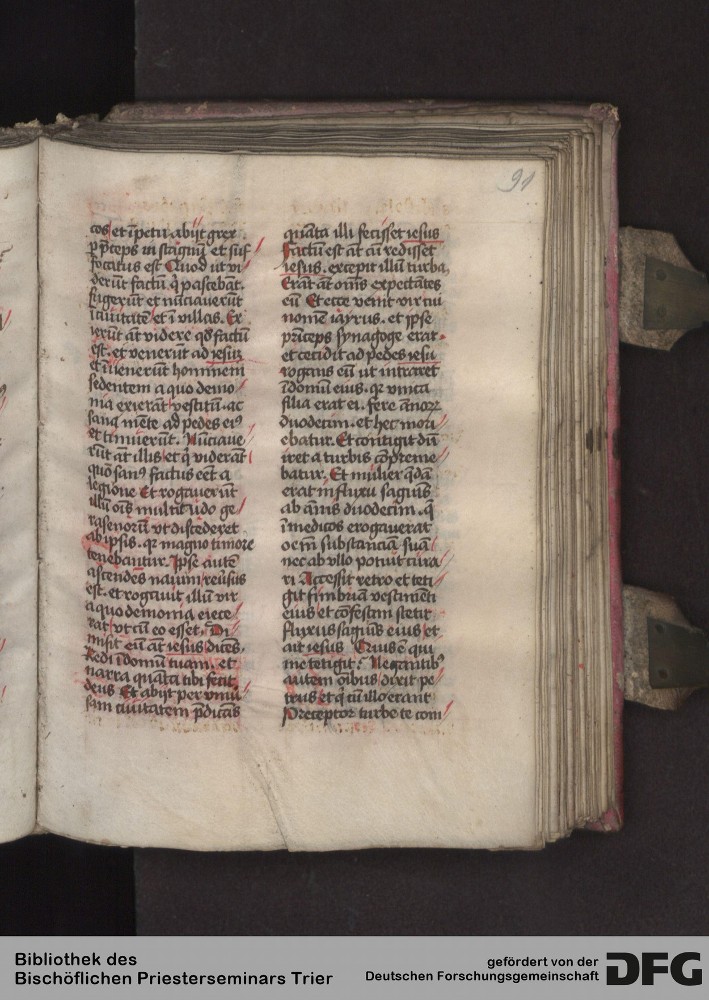 91
cos et īpetu abijt grex
p p̄ceps in stagnū et suf
focatus est Quod ut vi
derūt factū q̄ pascebāt.
fugerūt et nūciauerūt
ī ciuitatē et ī villas. Ex
ierūt āt videre qd̛ factū
est. et venerūt ad iesuȝ
et īuenerūt hominem
sedentem a quo demo
nia exierāt vestitū. ac
sana mēte ad pedes eiꝰ
et timuerūt. Nūciaue
rūt āt illis et q̄ viderāt
quō sanꝰ factus eēt a
legione Et rogauerūt
illū oīs multitudo ge
rasenorū vt discederet
ab ipsis. qr magno timore
tenebantur. Ipse autē
ascendēs nauim reūsus
est. et rogauit illū vir
a quo demonia eiece
rat vt cū eo esset. Di
misit eū āt iesus dicēs.
Redi ī domū tuam. et
narra quāta tibi fecit
deus Et abijt per vniū
sam ciuitatem p̄dicās
quāta illi fecisset iesus
Factū est āt cū redisset
iesus. excepit illū turba,
Erāt āt om̄s expectātes
eū Et ecce venit vir cui
nomē iayrus. et ipse
prīceps synagoge erat.
et cecidit ad pedes iesu
rogans eū ut intraret
ī domū eius. qr vnica
filia erat ei. fere ānorꝝ
duodecim. et hec mori
ebatur. Et contigit dū
iret a turbis cōpreme
batur. Et mulier q̄dā
erat in fluxu sāguīs
ab ānis duodecim. q̄
ī medicos erogauerat
oēm substanciā suā
nec ab vllo potuit cura
ri Accessit retro et teti
git fimbriā vestimēti
eius et cōfestim stetit
fluxus sāguīs eius et
ait iesus Quis ē qui
me tetigit? Negantibꝰ
autem oībus dixit pe
trus et q̄ cū illo erant
Preceptor turbe te com
Bibliothek des
Bischöflichen Priesterseminars Trier
gefördert von der
Deutschen Forschungsgemeinschaft
DFG